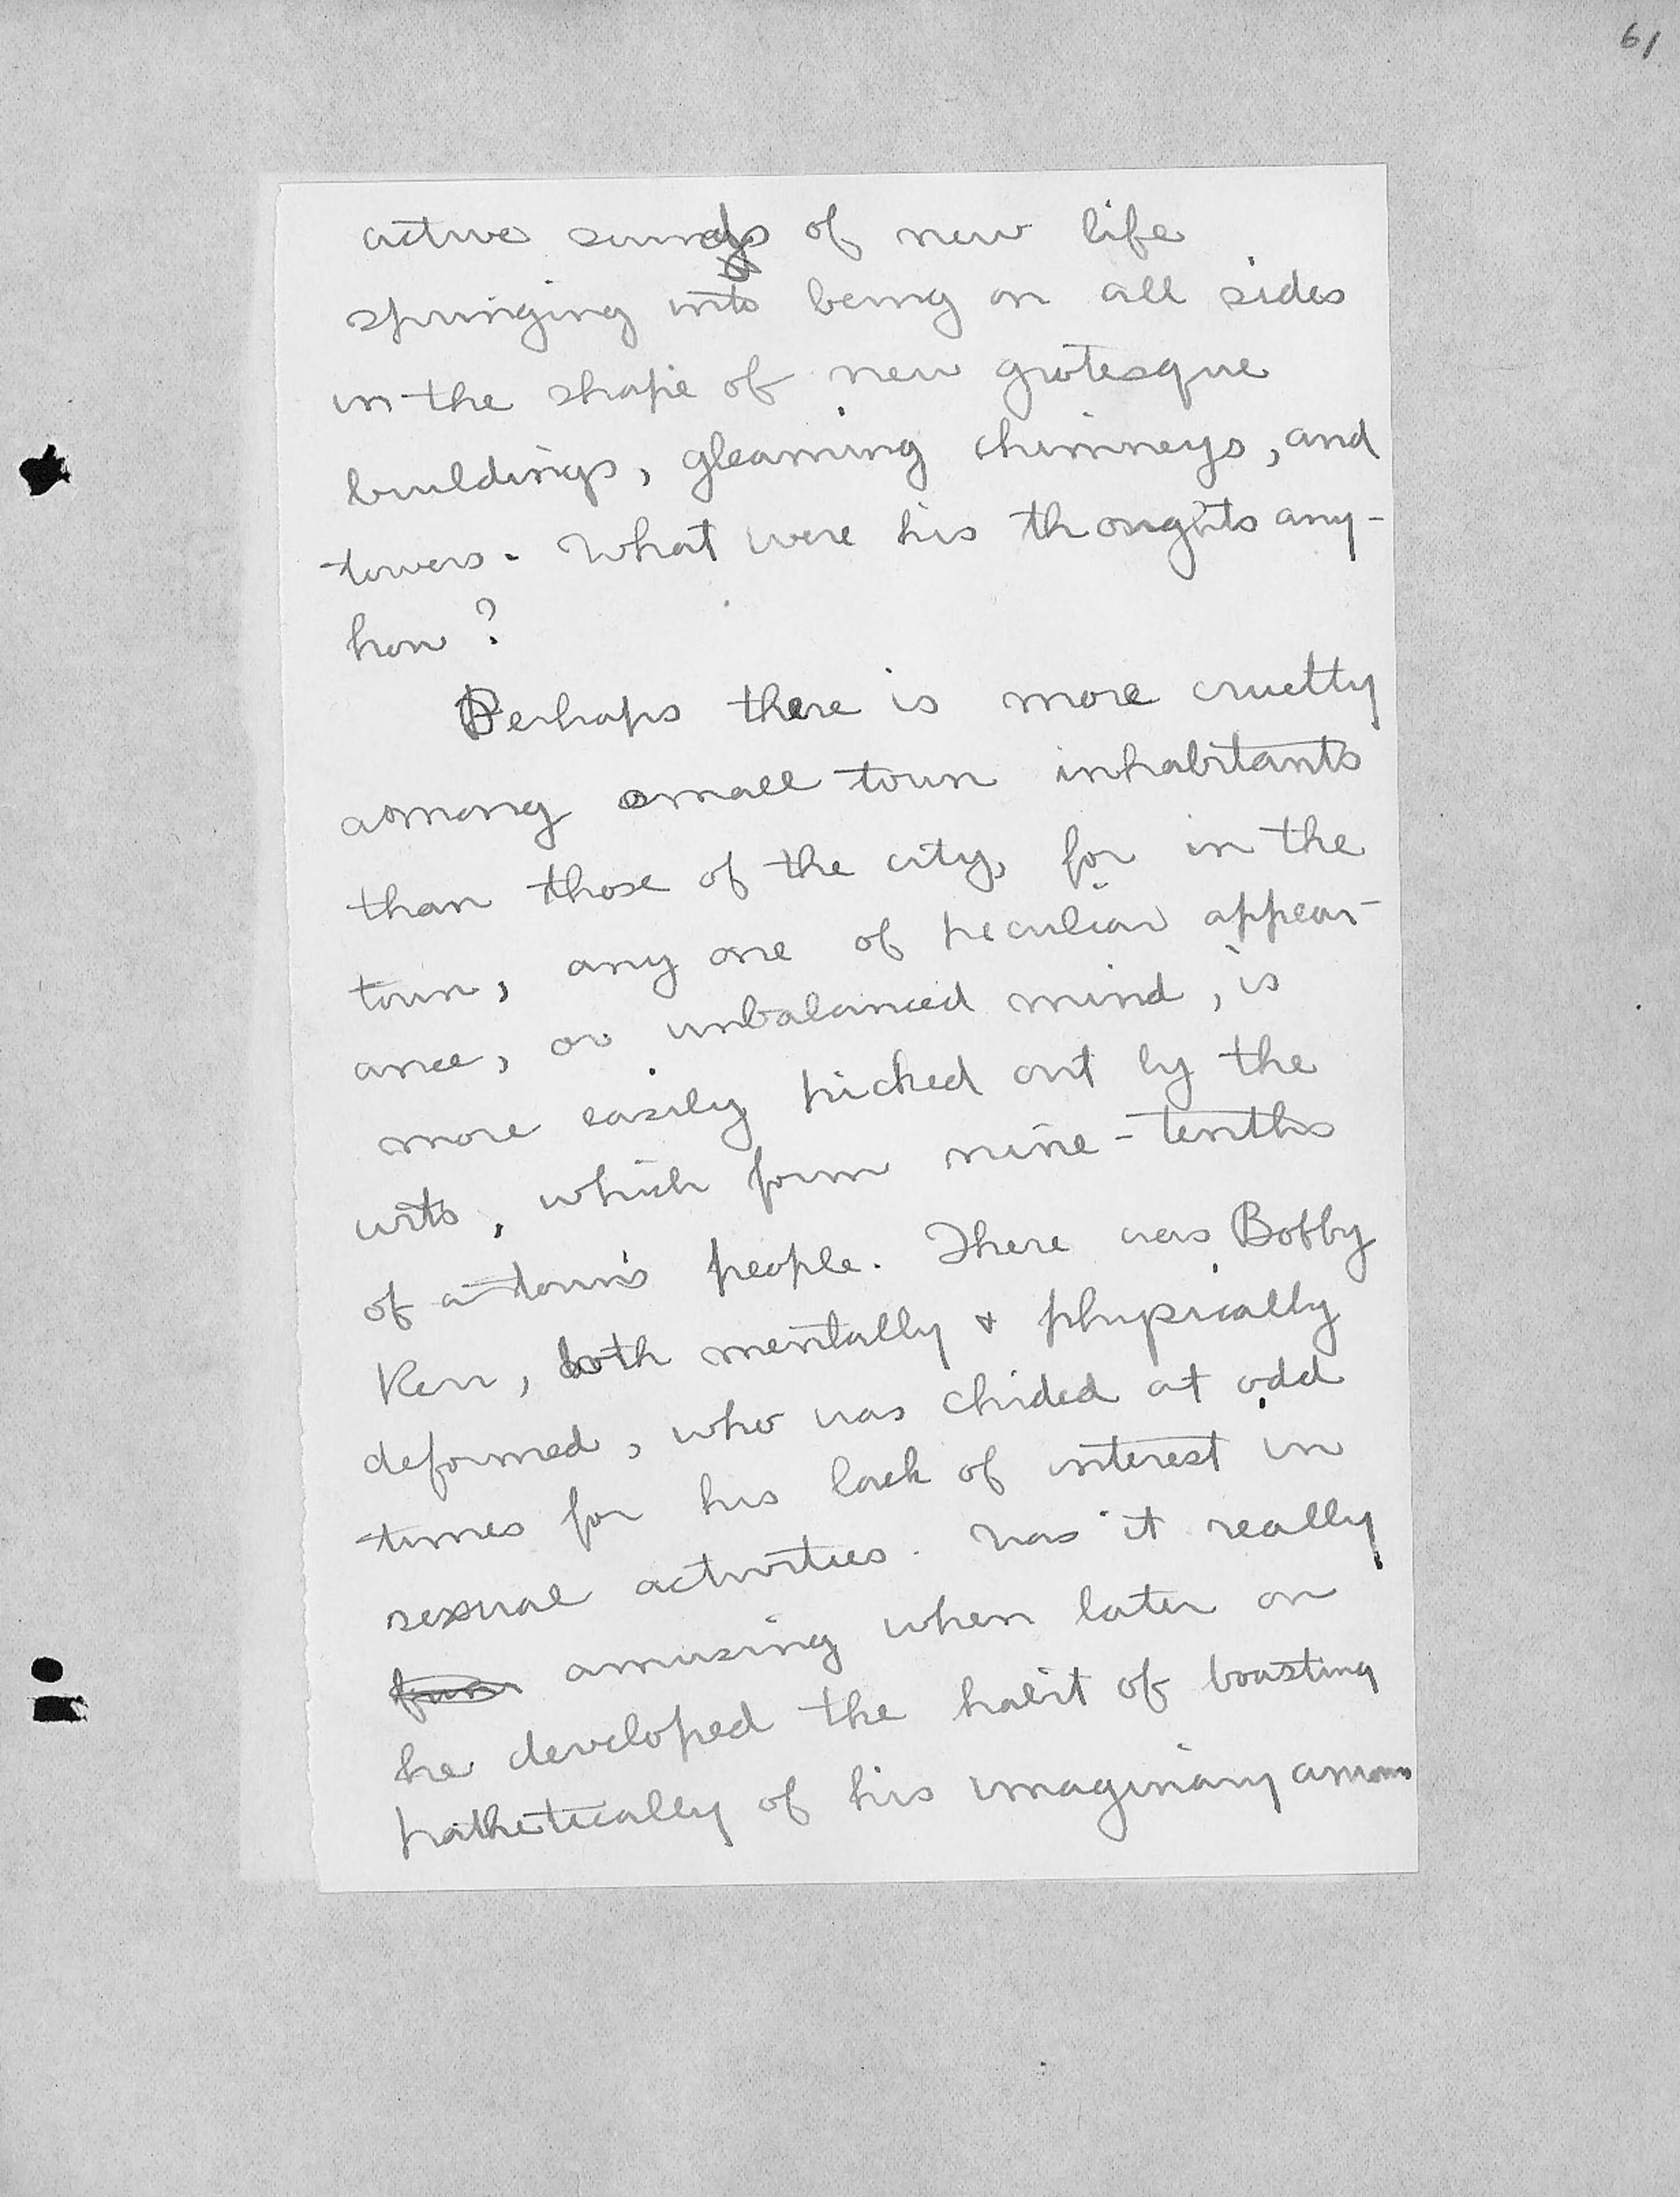 61
active sounds of new life
springing into being on all sides
in the shape of new grotesque
buildings, gleaming chimneys, and
towers. What were his thoughts any-
how?
Perhaps there is more cruelty
among small town inhabitants
than those of the city, for in the
town, any one of peculiar appear-
ance, or unbalanced mind, is
more easily picked out by the
wits, which form nine-tenths
of a town's people. There was Bobby
Kerr, both mentally & physically
deformed, who was chided at odd
times for his lack of interest in
sexual activities. Was it really
amusing when later on
he developed the habit of boasting
pathetically of his imaginary amours